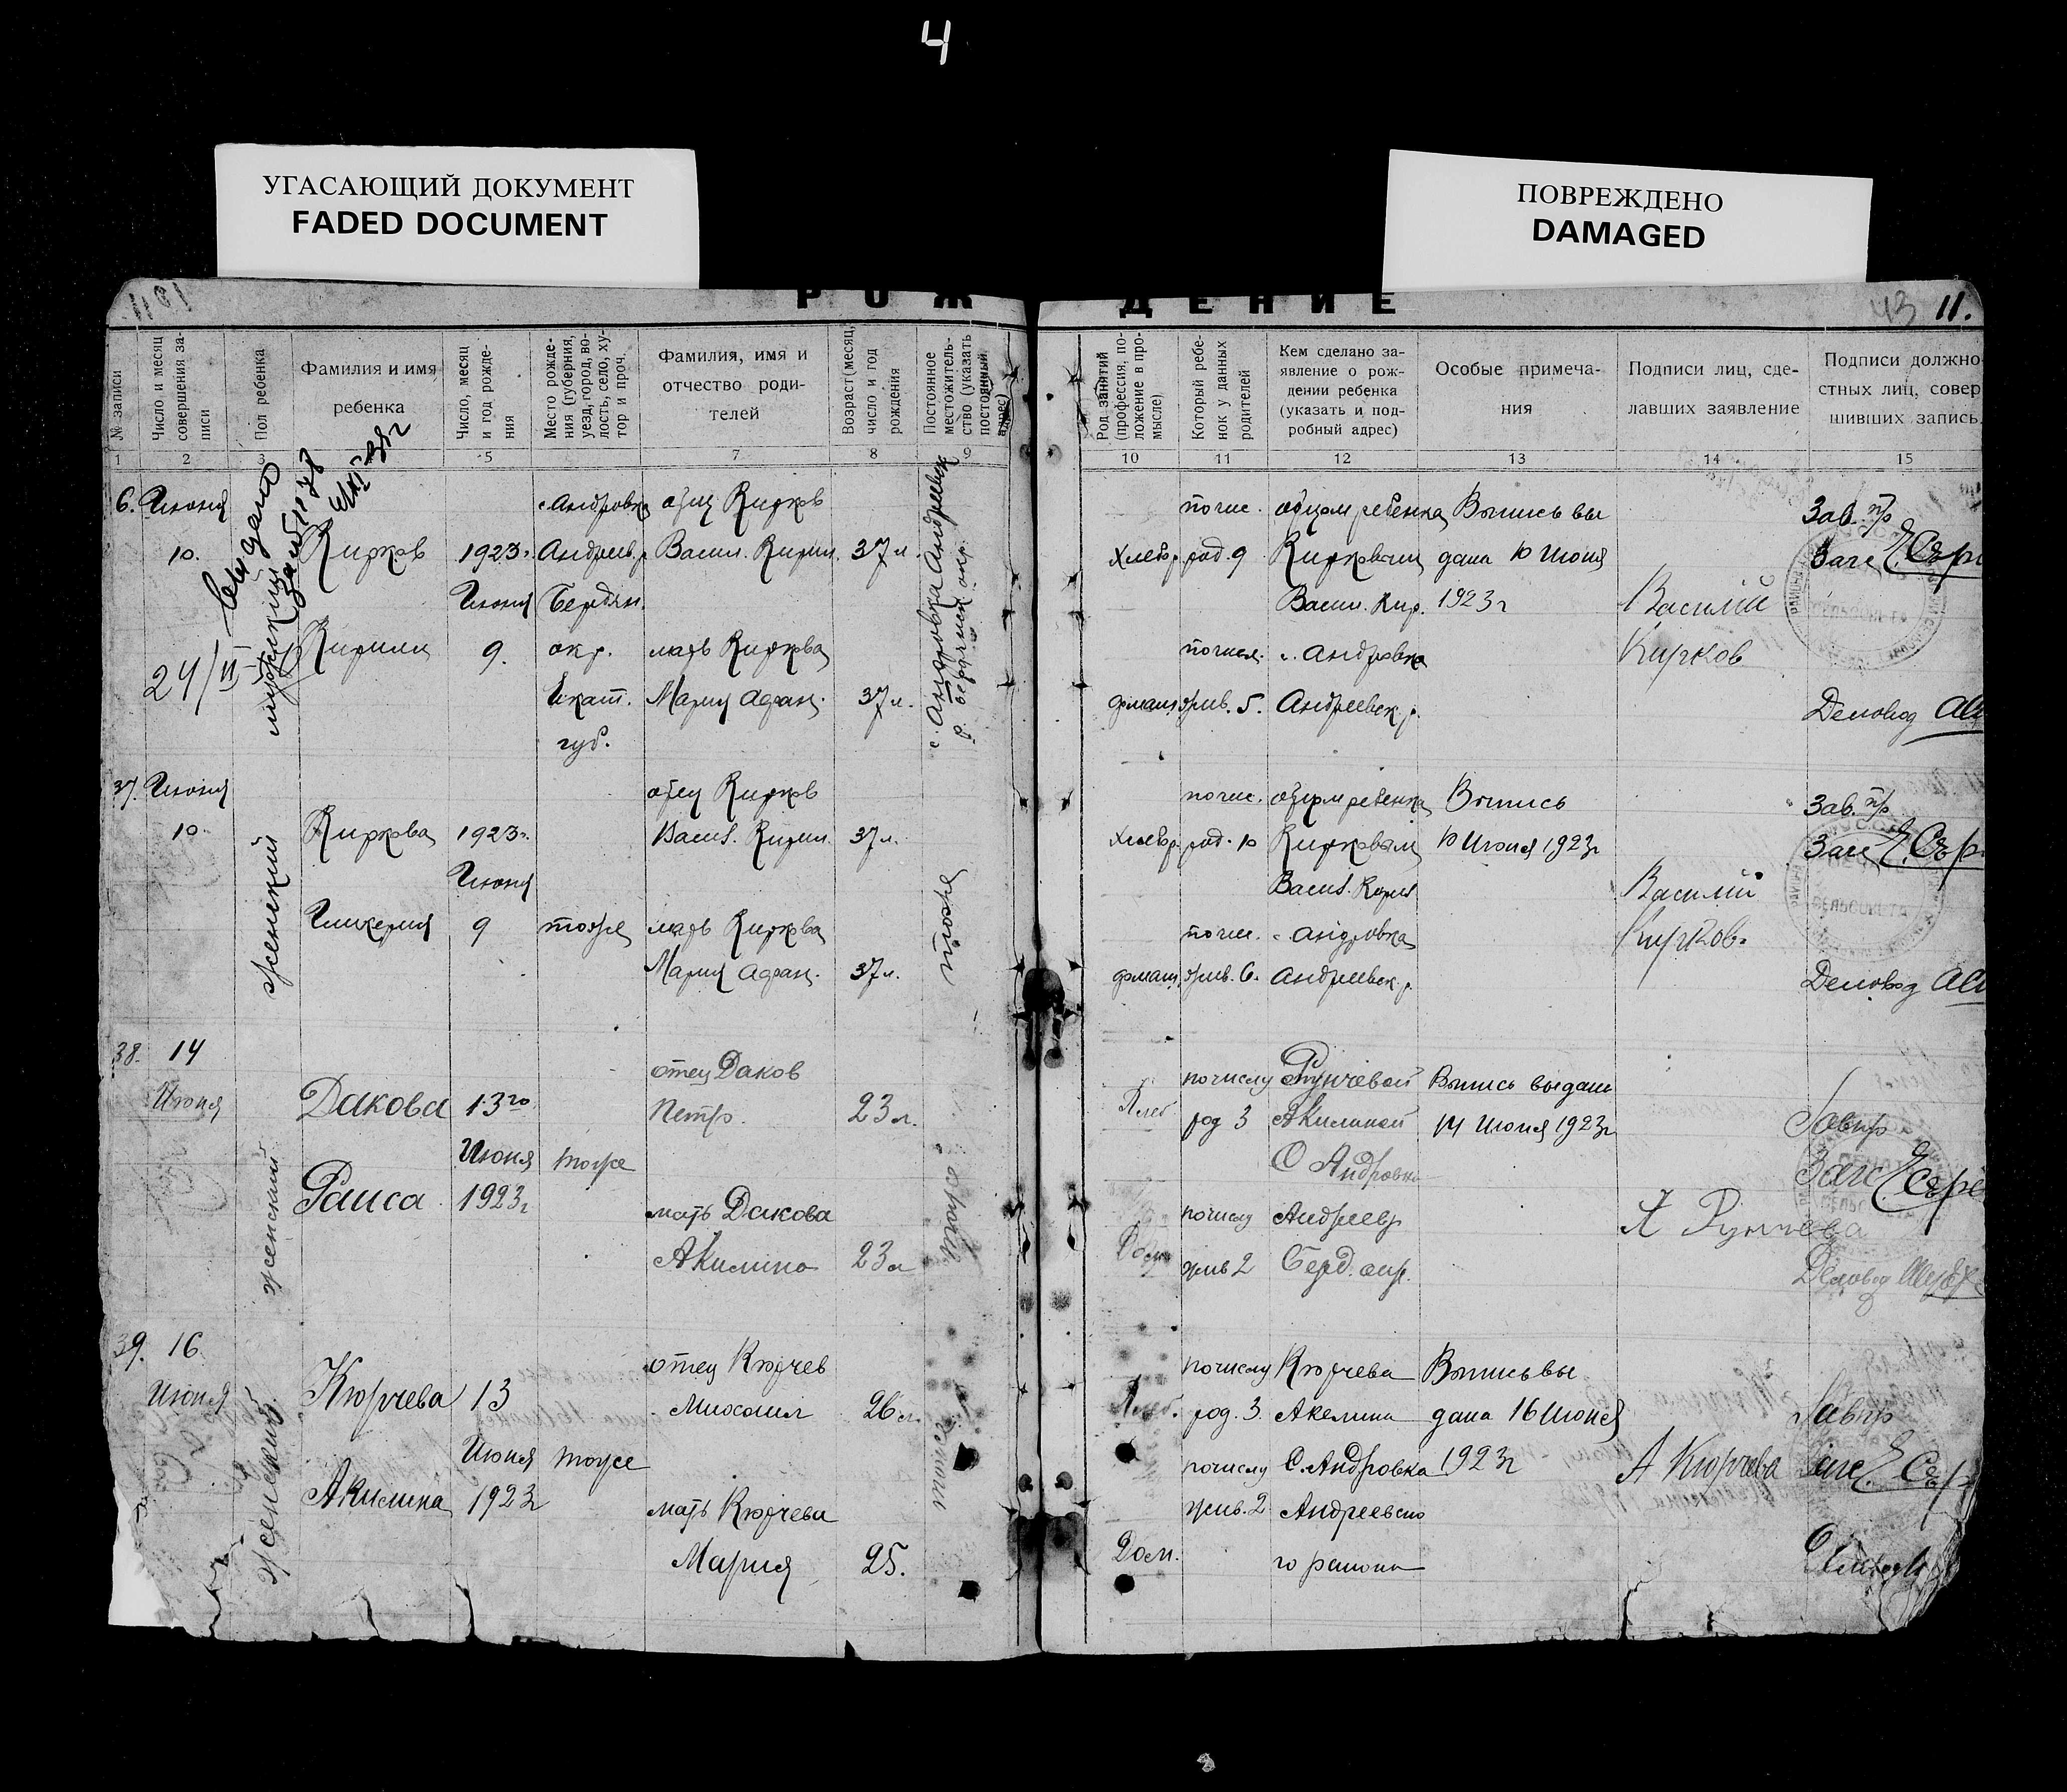 4
УГАСАЮЩИЙ ДОКУМЕНТ
FADED DOCUMENT
ПОВРЕЖДЕНО
DAMAGED
РОЖДЕНИЕ
43 11.
№ записи
Число и месяц совершения за-
писи
Пол ребенка
Фамилия и имя
ребенка
Число, месяц
и год рожде-
ния
Место рожде-
ния (губерния,
уезд, город, во-
лость, село, ху-
тор и проч.
Фамилия, имя и
отчество роди-
телей
Возраст (месяц,
число и год
рождения
Постоянное
местожитель-
ство (указать
постоянный
адрес)
Род занятий
(профессия, по-
ложение в про-
мысле)
Который ребе-
нок у данных
родителей
Кем сделано за-
явление о рож-
дении ребенка
(указать и под-
робный адрес)
Особые примеча-
ния
Подписи лиц, сде-
лавших заявление
Подписи должно
стных лиц, совер
шивших запись.
1 2 3 5 7 8 9 10 11 12 13 14 15
6. Июня
10.
24/II
мужский
Кирков
Кирилл
1923г.
Июня
9.
с. Андровка
Андреев. р.
Бердян.
окр.
Екат.
губ.
отец Кирков
Васил. Кирил. 37 л.
мать Киркова
Мария Афан. 37 л.
с. Андровка Андреевск
р. Бердянск окр.
Хлебор.
домаш.
по чис.
род. 9
по числ.
жив. 5.
отцом ребенка
Кирковым
Васил. Кир.
с. Андровка
Андреевск. р.
Выпись вы
дана 10 Июня
1923г
Василий
Кирков
Зав. п/р
Загс
Деловод
37. Июня
10.
женский
Киркова
Гликерия
1923г.
Июня
9
тоже
отец Кирков
Васил. Кирил. 37 л.
мать Киркова
Мария Афан. 37 л.
тоже
Хлебор.
домаш.
по чис.
род. 10
по чис.
жив. 6.
отцом ребенка
Кирковым
Васил. Кирил
с. Андровка
Андреевск. р.
Выпись
10 Июня 1923г
Василий
Кирков.
Зав. п/р
Загс
Деловод
38. 14
Июня
женский
Дакова
Раиса
13го
Июня
1923г
тоже
отец Даков
Петр. 23 л.
мать Дакова
Акилина 23 л
тоже
Хлеб
Дом
по числу
род 3
по числу
жив 2
Рунчевой
Акилиной
С Андровка
Андреевр
Берд. окр.
Выпись выдана
14 Июня 1923г
А Рунчева
Завп/р
Загс
Деловод
39. 16
Июня
женский
Кюрчева
Акилина
13
Июня
1923г
тоже
отец Кюрчев
Михаил 26 л.
мать Кюрчева
Мария 25.
тоже
Хлеб.
Дом.
по числу
род. 3.
по числу
жив. 2
Кюрчева
Акелина
С. Андровка
Андреевско
го района
Выпись вы
дана 16 Июня
1923г
А Кюрчева
Завп/р